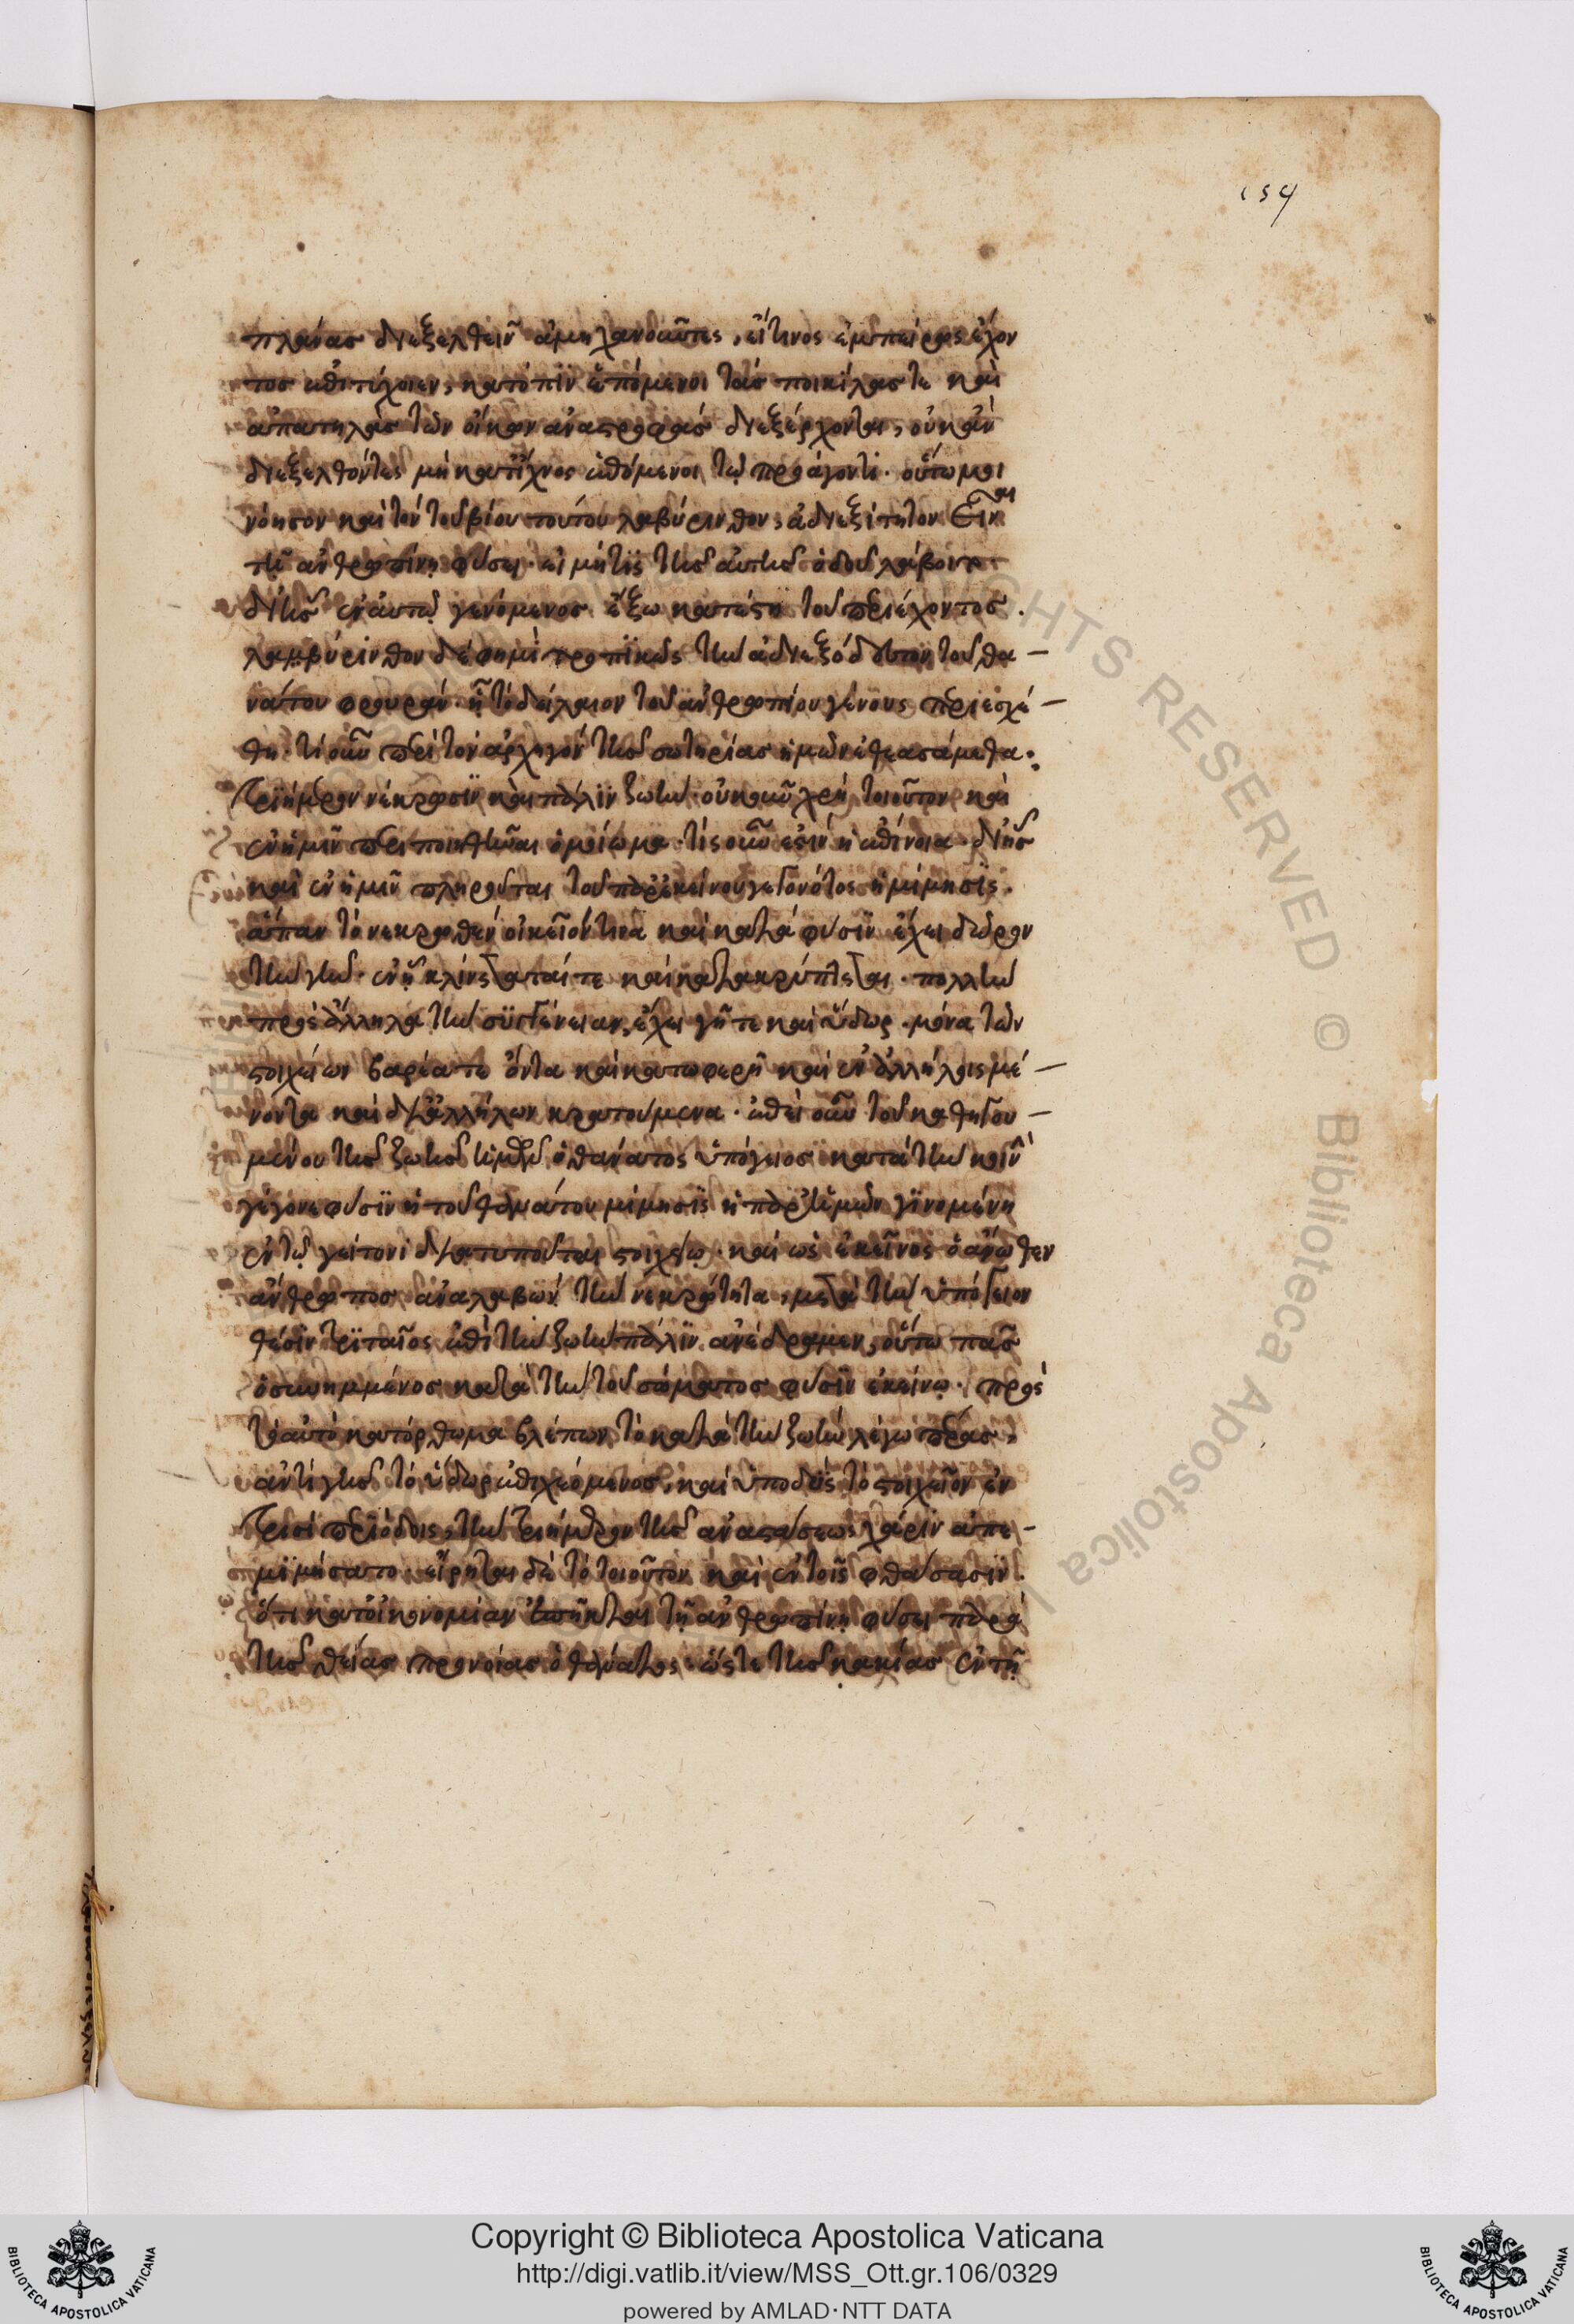 154
πλάνας διεξελθεῖν ἀμηχανοῦντες, εἴ τινος ἐμπείρως ἔχον
τος ἐπιτύχοιεν, κατόπιν ἑπόμενοι τὰς ποικίλας τε καὶ
ἀπατηλὰς τῶν οἴκων ἀναστροφὰς διεξέρχονται, οὐκ ἂν
διεξελθόντες μὴ κατ' ἴχνος ἑπόμενοι τῷ προάγοντι. οὕτω μοι
νόησον καὶ τὸν τοῦ βίου τούτου λαβύρινθον, ἀδιεξίτητον εἶναι
τῇ ἀνθρωπίνῃ φύσει. εἰ μή τις τῆς αὐτῆς ὁδοῦ λάβοιτο
δι' ἧς ἐν αὐτῷ γενόμενος ἔξω κατέστη τοῦ περιέχοντος.
λαμβύρινθον δέ φημι τροπικῶς τὴν ἀδιεξόδευτον τοῦ θα –
νάτου φρουράν. ᾗ τὸ δείλαιον τοῦ ἀνθρωπίνου γένους περιεσχέ –
θη. τί οὖν περὶ τὸν ἀρχηγὸν τῆς σωτηρίας ἡμῶν ἐθεασάμεθα.
τριήμερον νέκρωσιν καὶ πάλιν ζωήν. οὐκοῦν χρὴ τοιοῦτον καὶ
ἐν ἡμῖν περιποιηθῆναι ὁμοίωμα. τίς οὖν ἐστιν ἡ ἐπίνοια. δι' ἧς
καὶ ἐν ἡμῖν πληροῦται τοῦ παρ' ἐκείνου γεγονότος ἡ μίμησις.
ἅπαν τὸ νεκρωθὲν οἰκεῖόν τινα καὶ κατὰ φύσιν ἔχει χῶρον
τὴν γῆν. ἐν ᾗ κλίνεταί τε καὶ κατακρύπτεται. πολλὴν
πρὸς ἄλληλα τὴν συγγένειαν ἔχει γῆ τε καὶ ὕδωρ. μόνα τῶν
στοιχείων βαρέα τε ὄντα καὶ κατωφερῆ καὶ ἐν ἀλλήλοις μέ –
νοντα καὶ δι' ἀλλήλων κρατούμενα. ἐπεὶ οὖν τοῦ καθηγου –
μένου τῆς ζωῆς ἡμῶν ὁ θάνατος ὑπόγειος κατὰ τὴν κοινὴν
γέγονε φύσιν ἡ τοῦ θανάτου μίμησις ἡ παρ' ἡμῶν γινομένη
ἐν τῷ γείτονι διατυποῦται στοιχείῳ. καὶ ὡς ἐκεῖνος ὁ ἄνωθεν
ἄνθρωπος ἀναλαβὼν τὴν νεκρότητα, μετὰ τὴν ὑπόγειον
θέσιν τριταῖος ἐπὶ τὴν ζωὴν πάλιν ἀνέδραμεν, οὕτω πᾶς
ὁ συνημμένος κατὰ τὴν τοῦ σώματος φύσιν ἐκείνῳ. πρὸς
τὸ αὐτὸ κατόρθωμα βλέπων τὸ κατὰ τὴν ζωὴν λέγω πέρας,
ἀντὶ γῆς τὸ ὕδωρ ἐπιχεόμενος, καὶ ὑποδὺς τὸ στοιχεῖον ἐν
τρισὶ περιόδοις, τὴν τριήμερον τῆς ἀναστάσεως χάριν ἀπε –
μιμήσατο. εἴρηται δὲ τὸ τοιοῦτον καὶ ἐν τοῖς φθάσασιν.
ὅτι κατ' οἰκονομίαν ἐπῆκται τῇ ἀνθρωπίνῃ φύσει παρὰ
τῆς θείας προνοίας ὁ θάνατος. ὥστε τῆς κακίας ἐν τῇ
RIGHTS RESERVED © Biblioteca Apostolica
Copyright © Biblioteca Apostolica Vaticana
http://digi.vatlib.it/view/MSS_Ott.gr.106/0329
powered by AMLAD·NTT DATA
BIBLIOTECA APOSTOLICA VATICANA
BIBLIOTECA APOSTOLICA VATICANA